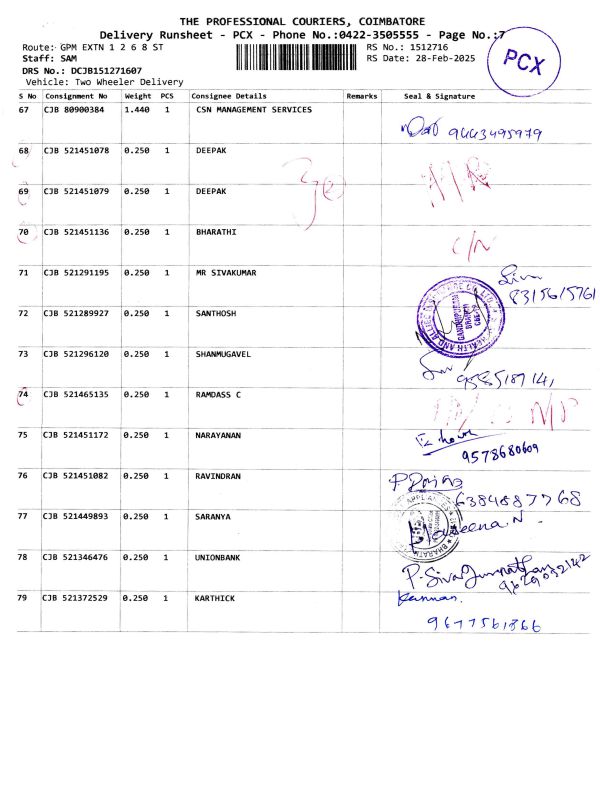 THE PROFESSIONAL COURIERS, COIMBATORE
Delivery Runsheet - PCX - Phone No.:0422-3505555 - Page No.:7
Route: GPM EXTN 1 2 6 8 ST RS No.: 1512716
Staff: SAM RS Date: 28-Feb-2025
PCX
DRS No.: DCJB151271607
Vehicle: Two Wheeler Delivery
S No Consignment No Weight PCS Consignee Details Remarks Seal & Signature
67 CJB 80900384 1.440 1 CSN MANAGEMENT SERVICES
9443495979
68 CJB 521451078 0.250 1 DEEPAK
69 CJB 521451079 0.250 1 DEEPAK
70 CJB 521451136 0.250 1 BHARATHI
71 CJB 521291195 0.250 1 MR SIVAKUMAR
8315615761
72 CJB 521289927 0.250 1 SANTHOSH
73 CJB 521296120 0.250 1 SHANMUGAVEL
9585189141
74 CJB 521465135 0.250 1 RAMDASS C
75 CJB 521451172 0.250 1 NARAYANAN
9578680609
76 CJB 521451082 0.250 1 RAVINDRAN
6384887768
77 CJB 521449893 0.250 1 SARANYA
78 CJB 521346476 0.250 1 UNIONBANK
79 CJB 521372529 0.250 1 KARTHICK Kannan.
9677561366